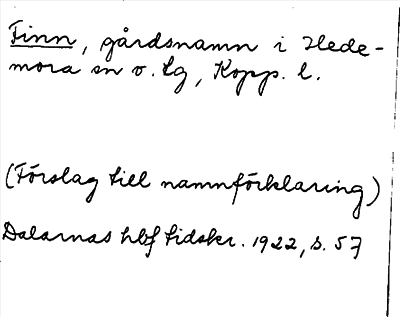 Finn, gårdsnamn i Hede-
mora sn o. lg, Kopp. l.
(Förslag till namnförklaring)
Dalarnas hbf tidskr. 1922, s. 57